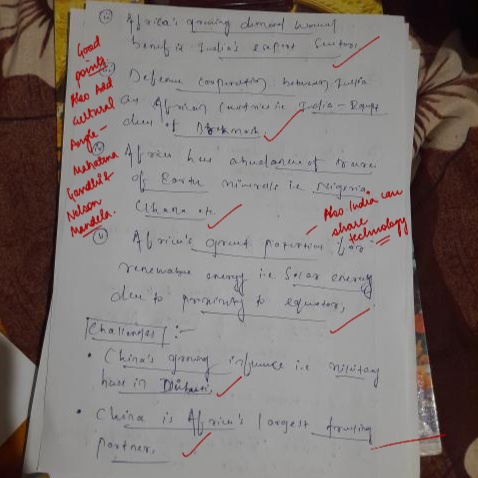 Africa's growing demand would
benefit India's export sector.
Good
points.
Also add
cultural
Angle -
Mahatma
Gandhi &
Nelson
Mandela.
Defence cooperation between India
African countries i.e. India - Egypt
deal of
Africa has abundance of
of Earth minerals i.e. Nigeria
Ghana etc
Also India can
share
technology
Africa's great potential for
renewable energy i.e. Solar energy
due to proximity to equator.
Challenges :-
• China's growing influence i.e. military
base in
• China is Africa's largest trading
partner.